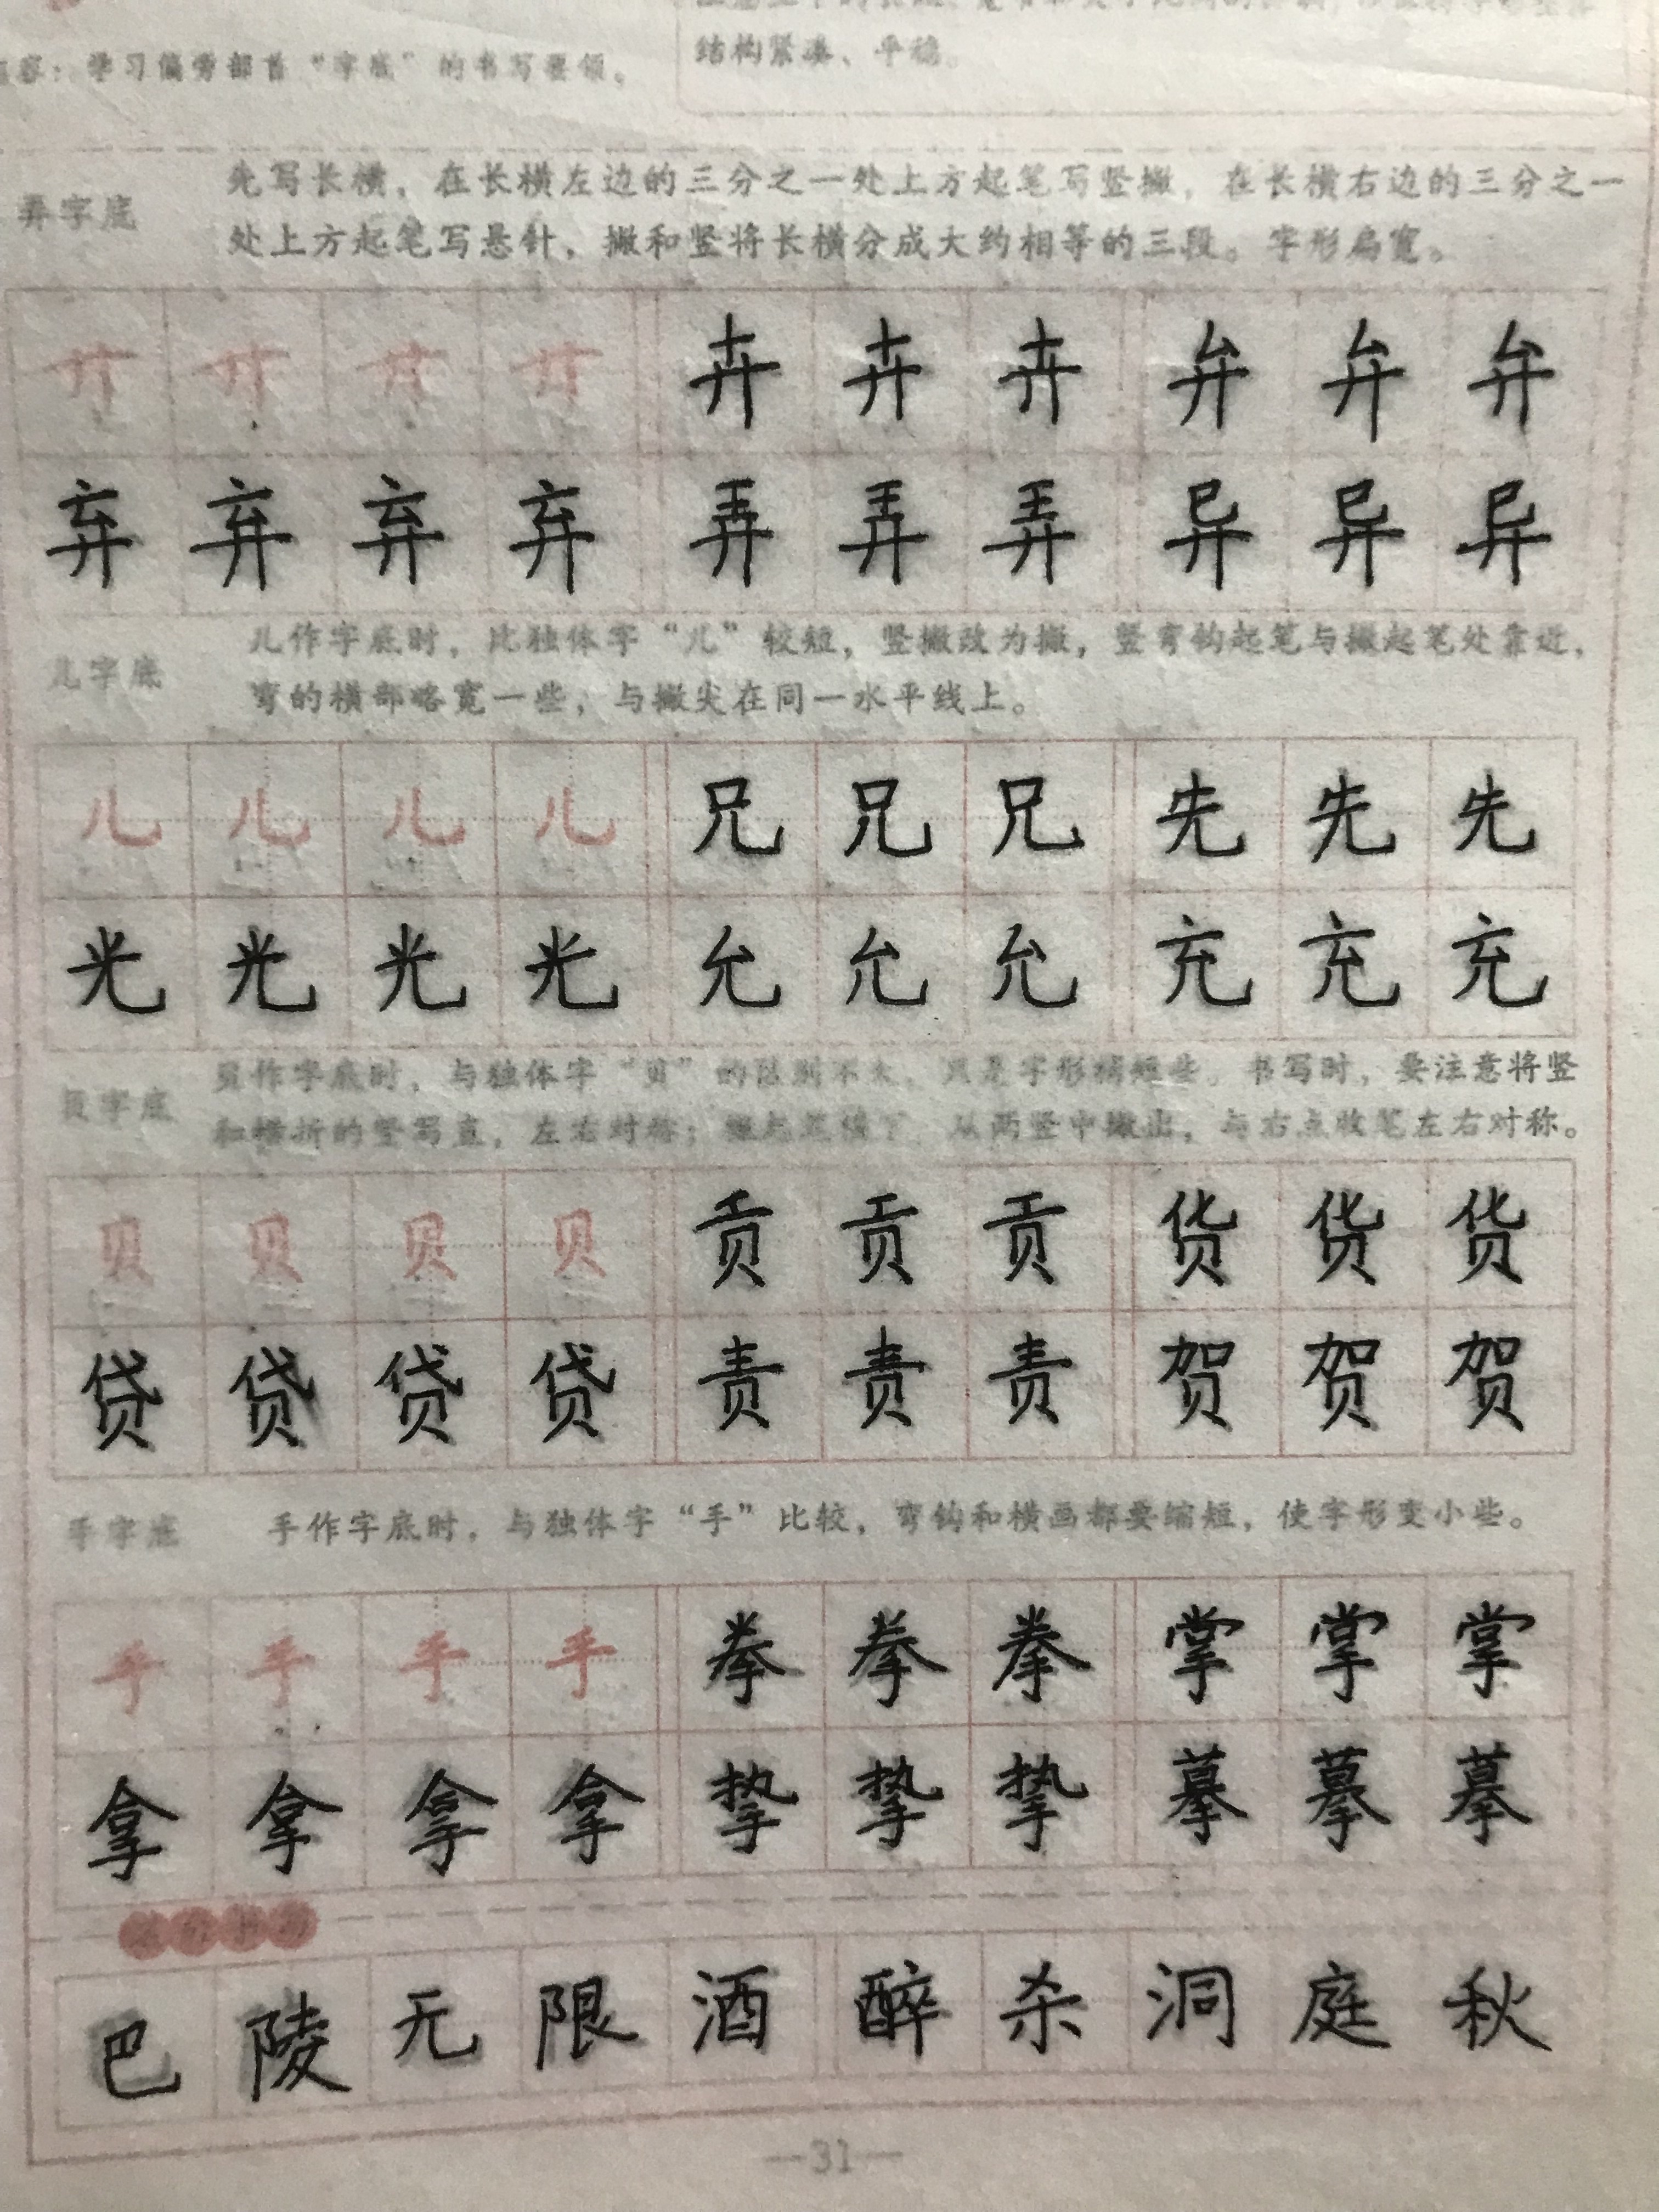 结构紧凑、平稳。
容：学习偏旁部首“字底”的书写要领。
弄字底
先写长横，在长横左边的三分之一处上方起笔写竖撇，在长横右边的三分之一
处上方起笔写悬针，撇和竖将长横分成大约相等的三段。字形扁宽。
廾 廾 廾 廾 卉 卉 卉 弁 弁 弁
弃 弃 弃 弃 弄 弄 弄 异 异 异
儿字底
儿作字底时，比独体字“儿”较短，竖撇改为撇，竖弯钩起笔与撇起笔处靠近，
弯的横部略宽一些，与撇尖在同一水平线上。
儿 儿 儿 儿 兄 兄 兄 先 先 先
光 光 光 光 允 允 允 充 充 充
贝字底
贝作字底时，与独体字“贝”的区别不大，只是字形稍短些。书写时，要注意将竖
和横折的竖写直，左右对称；撇起笔，从两竖中撇出，与右点收笔左右对称。
贝 贝 贝 贝 贡 贡 贡 货 货 货
贷 贷 贷 贷 责 责 责 贺 贺 贺
手字底
手作字底时，与独体字“手”比较，弯钩和横画都要缩短，使字形变小些。
手 手 手 手 拳 拳 拳 掌 掌 掌
拿 拿 拿 拿 挚 挚 挚 摹 摹 摹
巴 陵 无 限 酒 醉 杀 洞 庭 秋
—31—